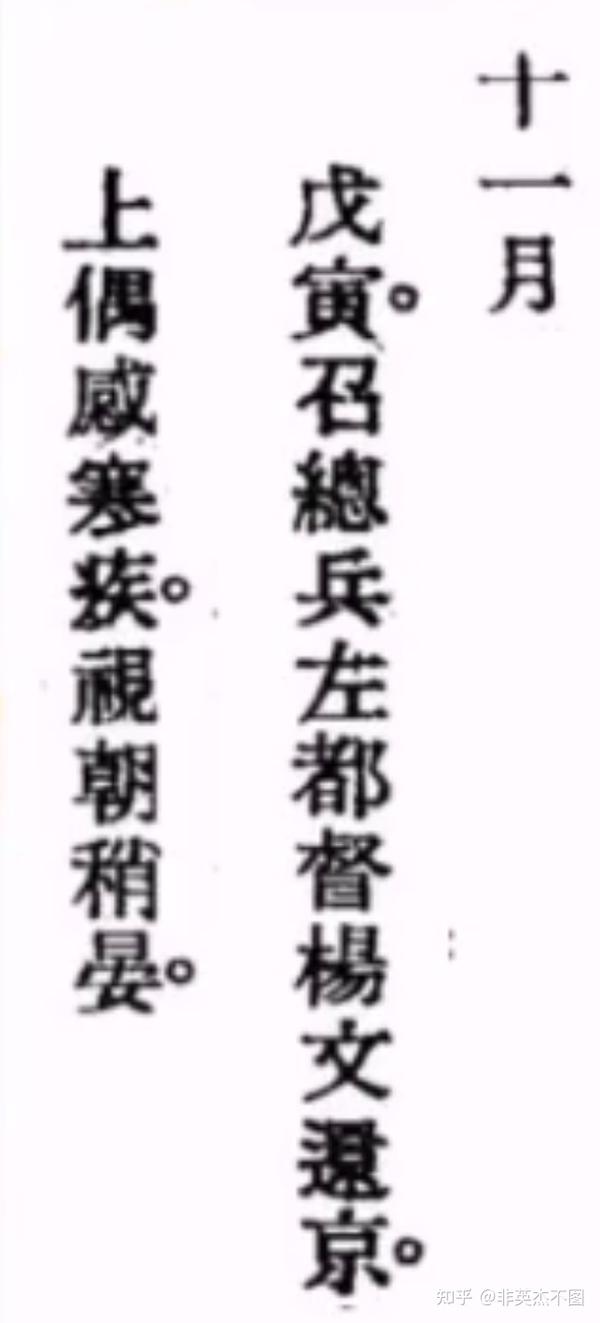 十一月
戊寅。召總兵左都督楊文還京。
上偶感寒疾。視朝稍晏。
知乎 @非英杰不图